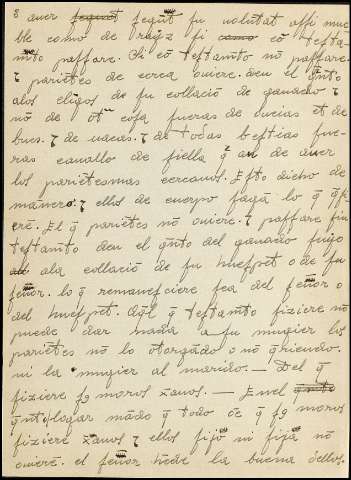 8 auer segũt fu uolũtat affi mue
ble como de rayz fi como cõ teftã
m̃to paffare. Si cõ teftam̃to nõ paffare
⁊ pariẽtes de cerca ouiere. deu el q̃nto
alos cl̃igos de fu collaciõ de ganacio ⁊
nõ de ot̃ cofa fueras de oueias et de
bues. ⁊ de uacas. ⁊ de todas beftias fue-
ras cauallo de fiella q̃ an de auer
los pariẽtes mas cercanos. Efto dicho de
manero. ⁊ ellos de cuerpo fagã lo q̃ q̃fi
erẽ. El q̃ pariẽtes nõ ouiere. ⁊ paffare fin
teftam̃to deu el q̃nto del ganacio
ala collaciõ de fu huefpet o de fu
feñor. lo q̃ remanefciere fea del feñor o
del huefpet. Aq̃l q̃ teftam̃to fiziere nõ
puede dar nada a fu mugier los
pariẽtes nõ lo otorgãdo o nõ q̃riendo.
ni la mugier al marido. — Del q̃
fiziere fꝫ moros x̃anos. — Enel
q̃nto logar mãdo q̃ todo õe q̃ fꝫ moros
fiziere x̃anos ⁊ ellos fijo ni fija nõ
ouierẽ. el feñor hẽde la buena dellos.